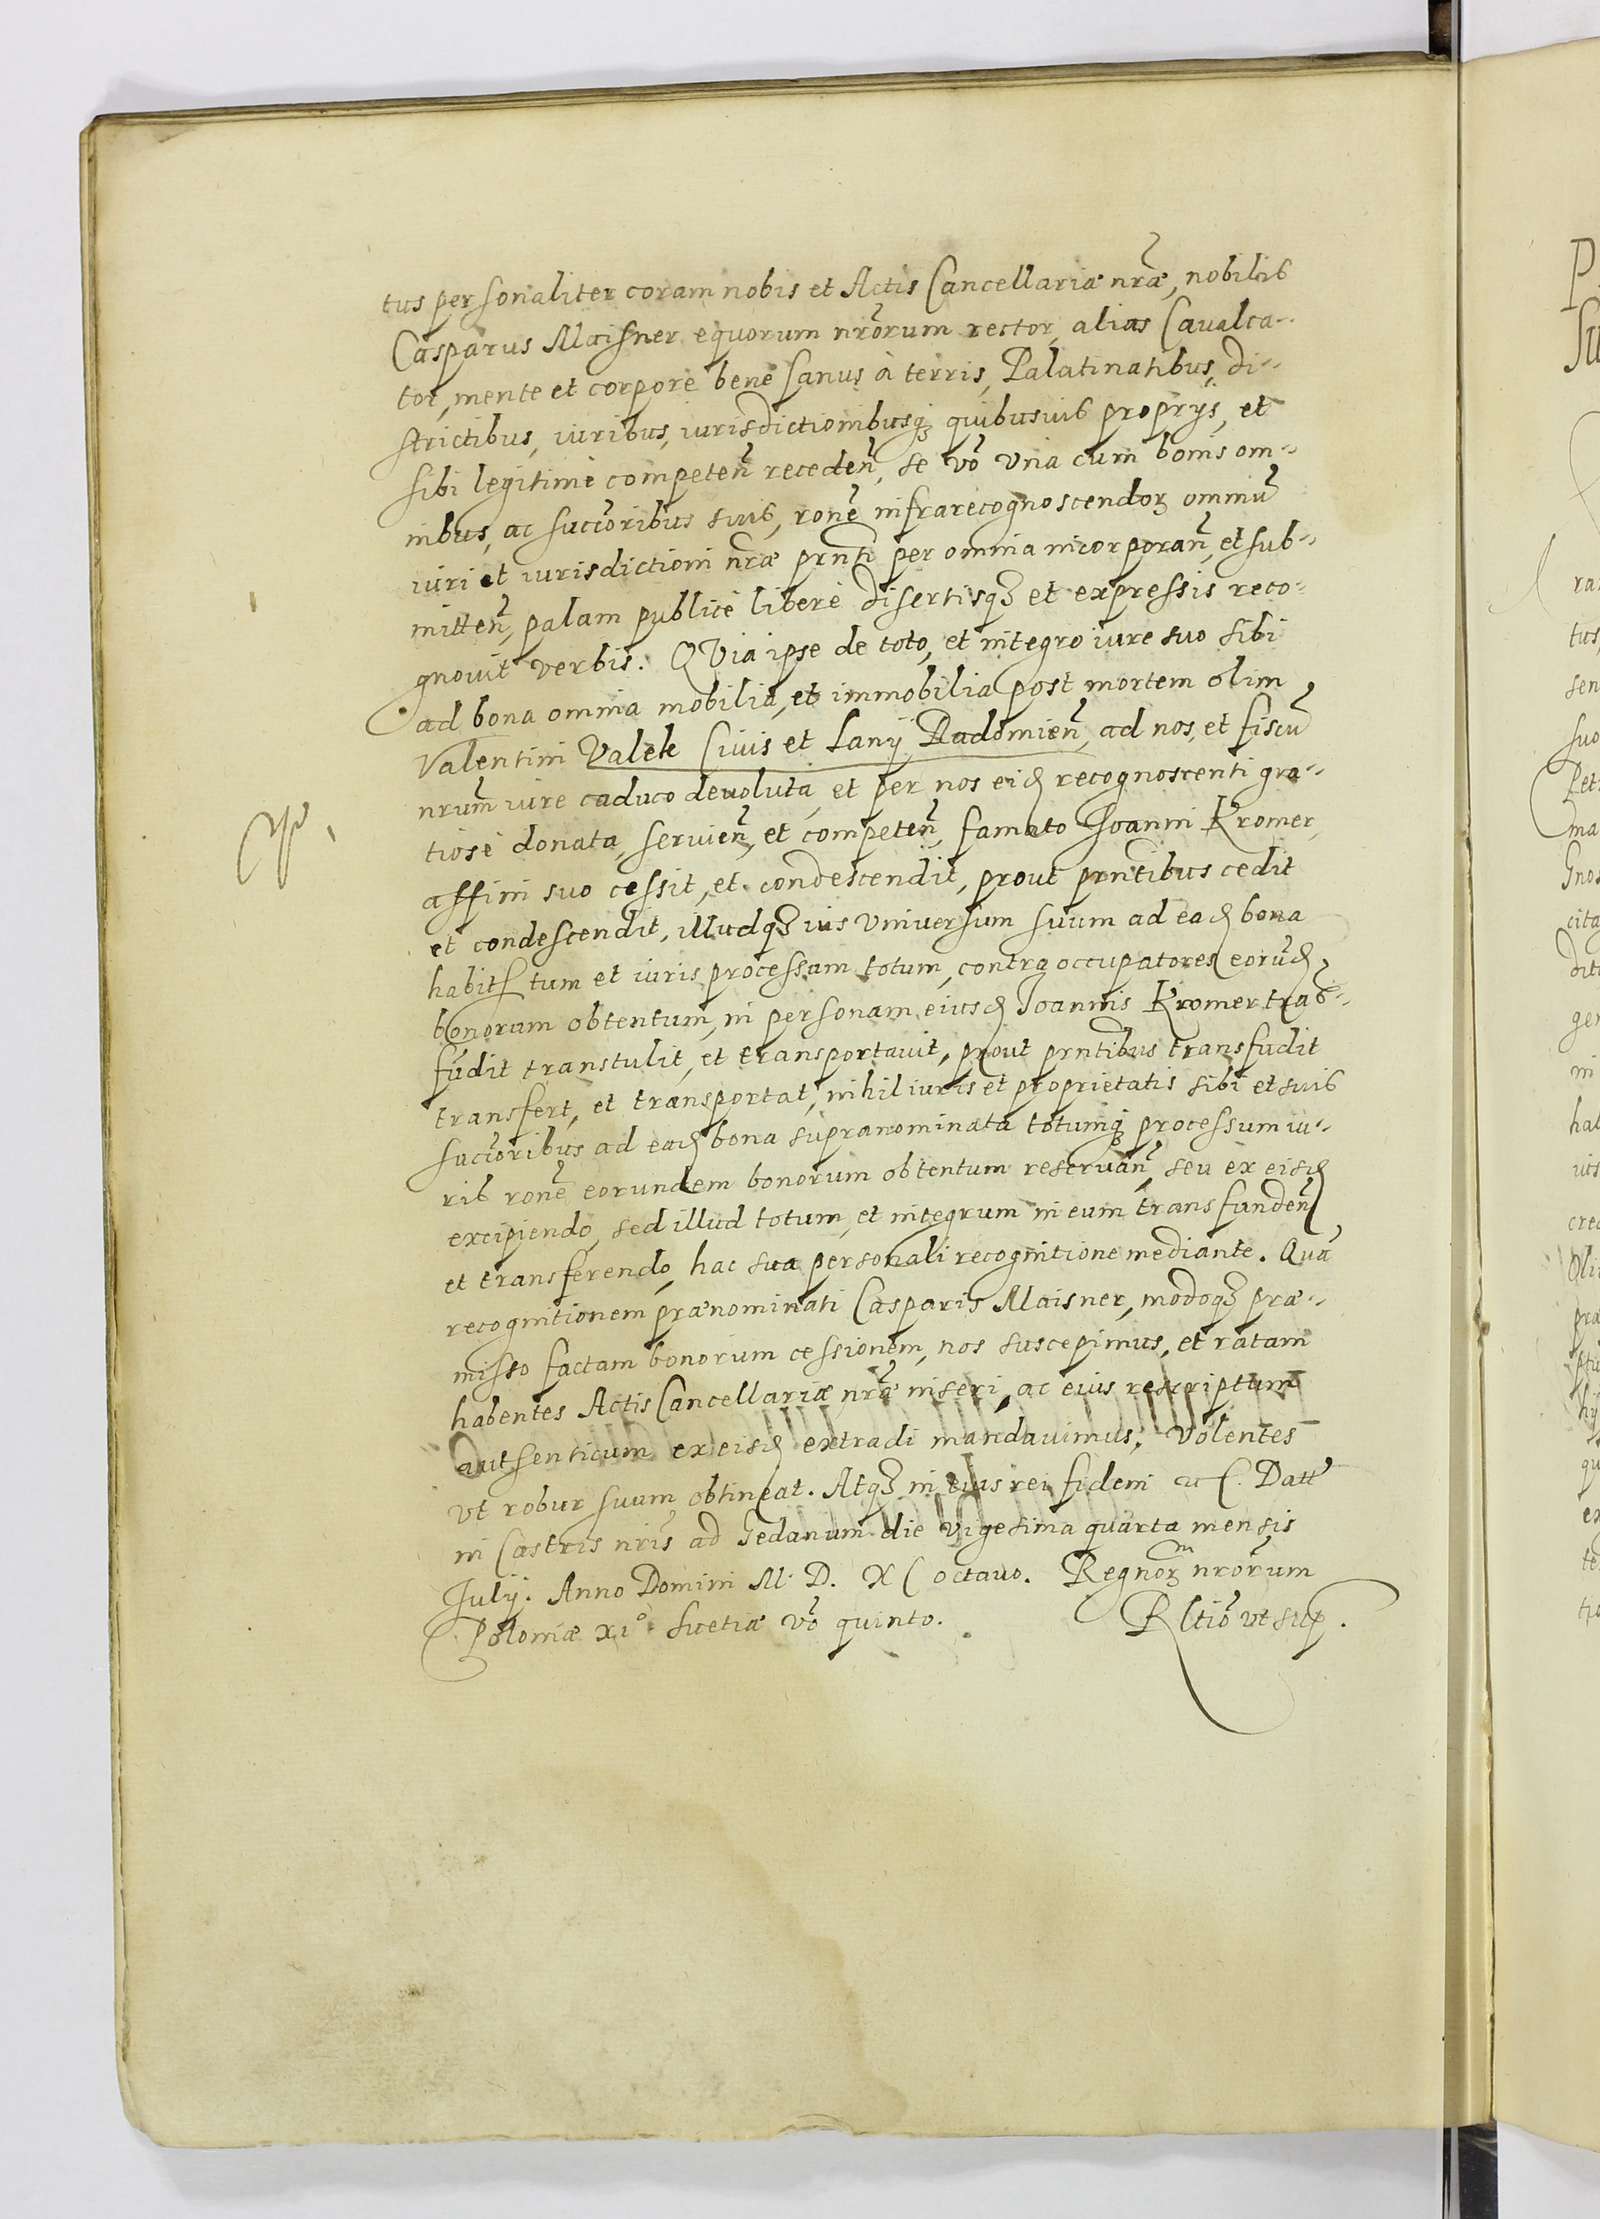 tus personaliter coram nobis et Actis Cancellariæ nr̃æ, nobilis
Casparus Maisner equorum nr̃orum rector, alias Caualca-
tor, mente et corpore bene sanus à terris, Palatinatibus, di-
strictibus, iuribus, iurisdictionibusq; quibusuis proprys, et
sibi legitime competeñ recedeñ, se võ vna cum bonis om-
nibus, ac succõribus suis, roñe infrarecognoscendoꝝ omniũ
iuri et iurisdictioni nr̃æ pr̃nti per omnia incorporañ, et sub-
mitteñ, palam publicè liberè disertisqꝫ et expressis reco-
gnouit verbis. QVia ipse de toto, et integro iure suo sibi
ad bona omnia mobilia, et immobilia post mortem olim
Valentini Valek Ciuis et Lanÿ Radomieñ, ad nos, et fiscũ
nrũm iure caduco deuoluta, et per nos eid recognoscenti gra-
tiosè donata, servieñ, et competeñ, famato Joanni Kromer,
affini suo cessit, et condescendit, prout pr̃ntibus cedit
et condescendit, illudqꝫ ius vniuersum suum ad ead bona
habit tum et iuris processum totum, contra occupatores eorũd
bonorum obtentum, in personam eiusd Joannis Kromer tras-
fudit transtulit, et transportauit, prout pr̃ntibus transfudit
transfert, et transportat, nihil iuris et proprietatis sibi et suis
succõribus ad ead bona supranominata totumq; processum iu-
ris roñe eorundem bonorum obtentum reseruañ, seu ex eisd
excipiendo, sed illud totum, et integrum in eum transfundeñ
et transferendo, hac sua personali recognitione mediante. Quã
recognitionem prænominati Casparis Maisner, modoqꝫ præ-
misso factam bonorum cessionem, nos suscepimus, et ratam
habentes Actis Cancellariæ nr̃æ inseri, ac eius rescriptum
autsenticum ex eisd extradi mandauimus. Volentes
vt robur suum obtineat. Atqꝫ in eius rei fidem etc. Datt̃
in Castris nr̃is ad Gedanum die vigesima quarta mensis
Julÿ. Anno Domini M. D. XC octauo. Regnoꝝ nr̃orum
Poloniæ xi° Suetiæ võ quinto. Rl̃tiõ vt sup.